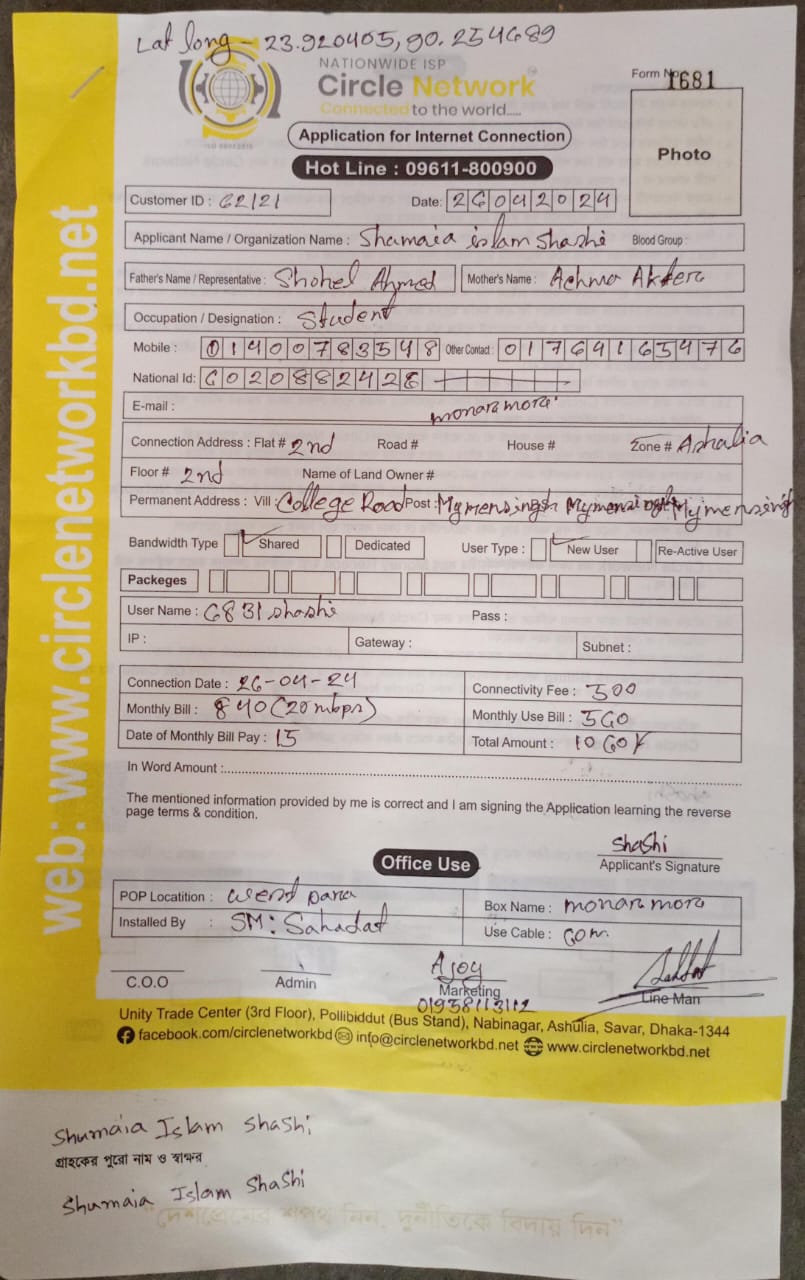 Lat long - 23.920405, 90.254689
NATIONWIDE ISP
Circle Network
Connected to the world.....
Form No 1681
Application for Internet Connection
Photo
Hot Line : 09611-800900
Customer ID : 62121 Date: 26042024
Applicant Name / Organization Name : Shumaia islam Shashi Blood Group :
Father's Name / Representative : Shohel Ahmed Mother's Name :
Occupation / Designation : Student
Mobile : 01400783548 Other Contact : 01764165476
National Id: 6020882428
E-mail :
monara mora
Connection Address : Flat # 2nd Road # House # Zone # Ashalia
Floor # 2nd Name of Land Owner #
Permanent Address : Vill : College Road Post : Mymensingh Mymensingh Mymensingh
Bandwidth Type Shared Dedicated User Type : New User Re-Active User
Packeges
User Name : 6831shashi Pass :
IP : Gateway : Subnet :
Connection Date : 26-04-24 Connectivity Fee : 500
Monthly Bill : 840 (20 mbps) Monthly Use Bill : 560
Date of Monthly Bill Pay : 15 Total Amount : 1060
In Word Amount :
The mentioned information provided by me is correct and I am signing the Application learning the reverse
page terms & condition.
Shashi
Applicant's Signature
Office Use
POP Locatition : Box Name : monara mora
Installed By : SM: Sahadat Use Cable : 60m.
C.O.O Admin Ajoy Marketing Line Man
01958113112
Unity Trade Center (3rd Floor), Pollibiddut (Bus Stand), Nabinagar, Ashulia, Savar, Dhaka-1344
facebook.com/circlenetworkbd info@circlenetworkbd.net www.circlenetworkbd.net
web: www.circlenetworkbd.net
Shumaia Islam Shashi
গ্রাহকের পুরো নাম ও স্বাক্ষর
Shumaia Islam Shashi
"দেশপ্রেমের শপথ নিন, দুর্নীতিকে বিদায় দিন"